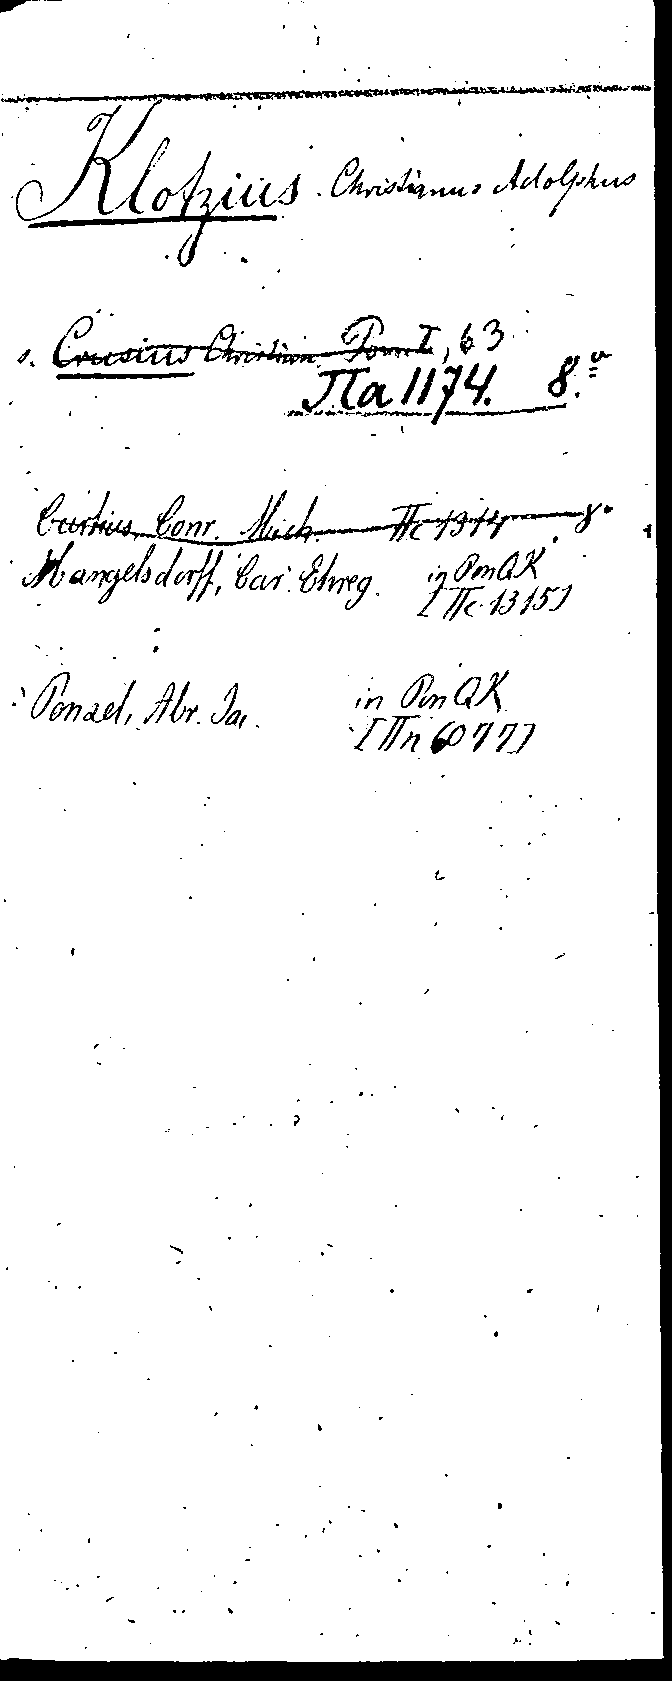 Klotzius Christianus Adolphus
s. Crusius Christian. Pom I, 63
IIa 1174. 8.º
Curtius, Conr. Mich. IIc 1314 8º
Mangelsdorff, Car. Ehreg. in Pon QK
[IIc 1315]
Ponzel, Abr. Ja. in Pon QK
[IIn 6077]